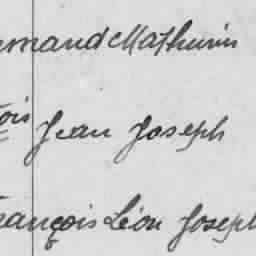 ernand Mathurin
çois Jean Joseph
rançois Léon Joseph